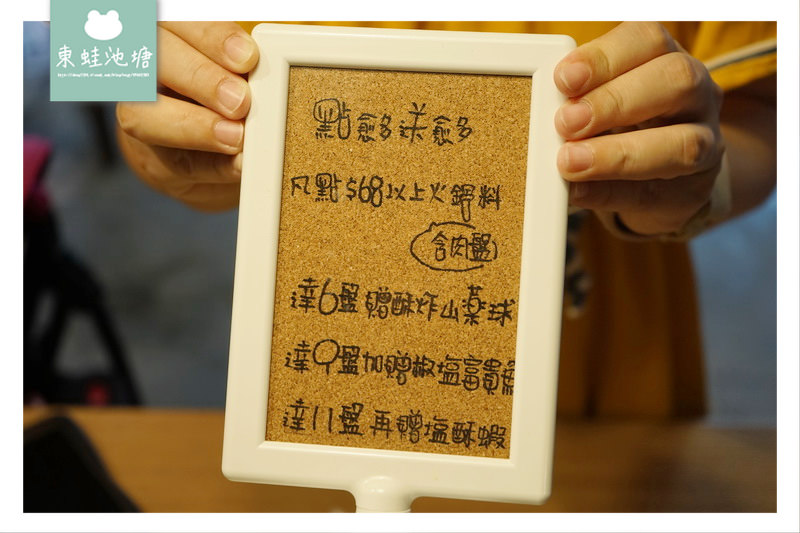 東蛙池塘
點愈多送愈多
凡點$68以上火鍋料
含肉盤
達6盤贈酥炸山藥球
達9盤加贈椒塩富貴魚
達11盤再贈塩酥蝦